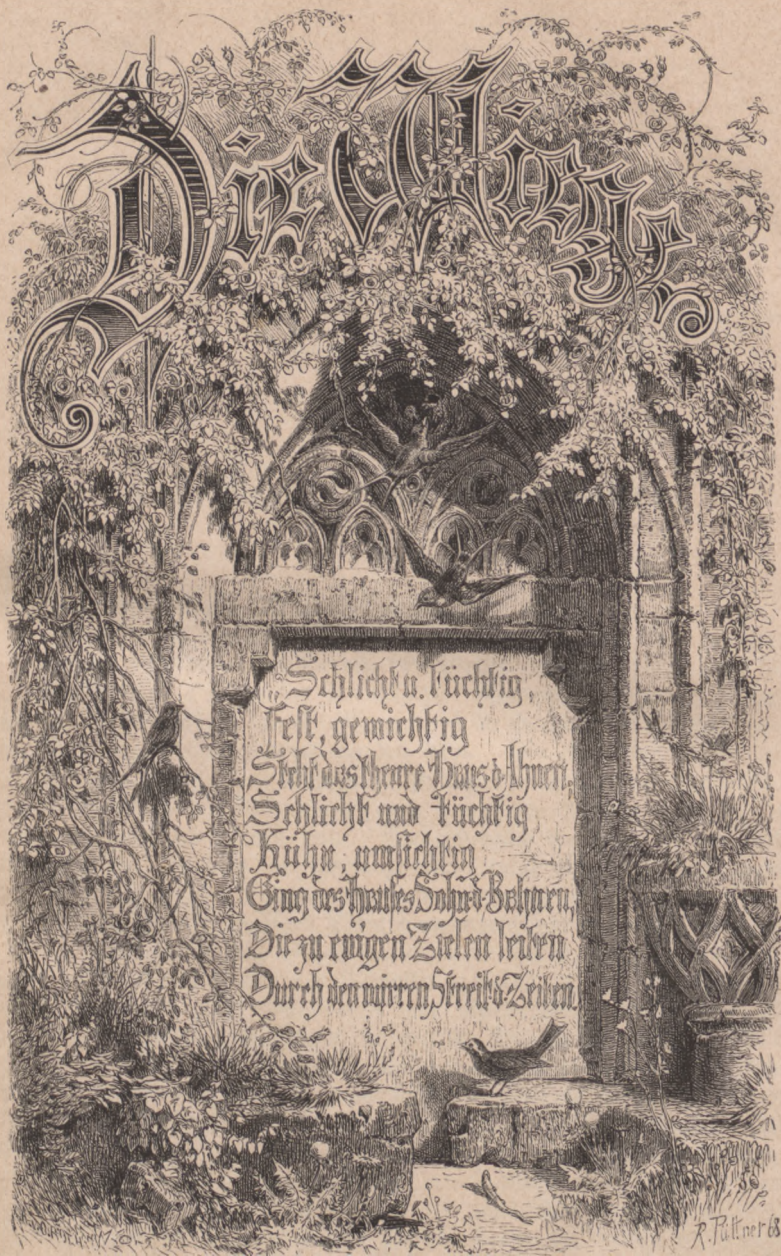 Die Wiege
Schlicht u. tüchtig,
Fest, gewichtig
Steht das theure Haus d. Ahnen,
Schlicht und tüchtig
Kühn, umsichtig
Ging des Hauses Sohn d. Bahnen,
Die zu ewigen Zielen leiten
Durch den wirren Streit d. Zeiten.
R. Püttner 68